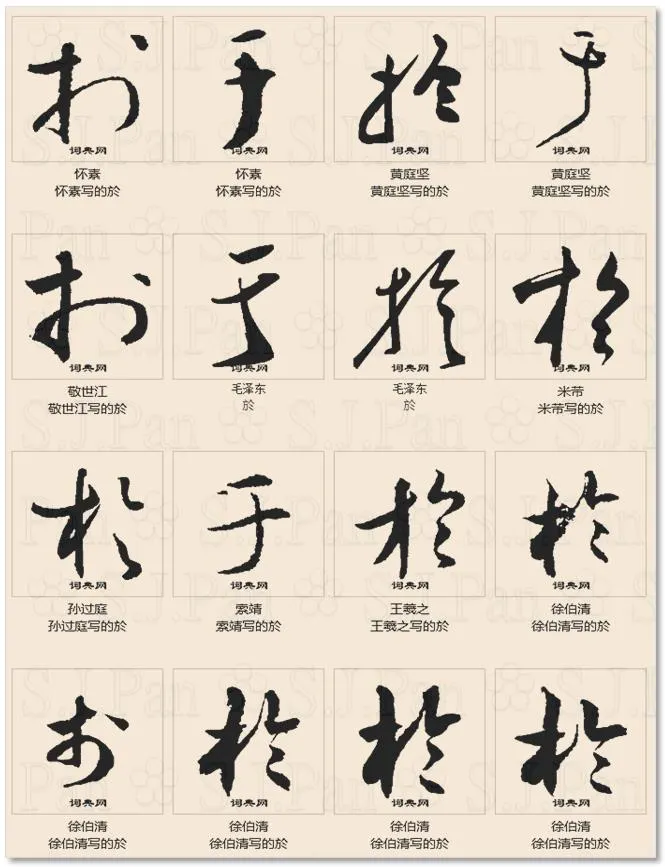 於 于 於 于
词典网 词典网 词典网 词典网
怀素 怀素 黄庭坚 黄庭坚
怀素写的於 怀素写的於 黄庭坚写的於 黄庭坚写的於
於 于 於 於
词典网 词典网 词典网 词典网
敬世江 毛泽东 毛泽东 米芾
敬世江写的於 於 於 米芾写的於
於 于 於 於
词典网 词典网 词典网 词典网
孙过庭 索靖 王羲之 徐伯清
孙过庭写的於 索靖写的於 王羲之写的於 徐伯清写的於
於 於 於 於
词典网 词典网 词典网 词典网
徐伯清 徐伯清 徐伯清 徐伯清
徐伯清写的於 徐伯清写的於 徐伯清写的於 徐伯清写的於
S.J.Pan